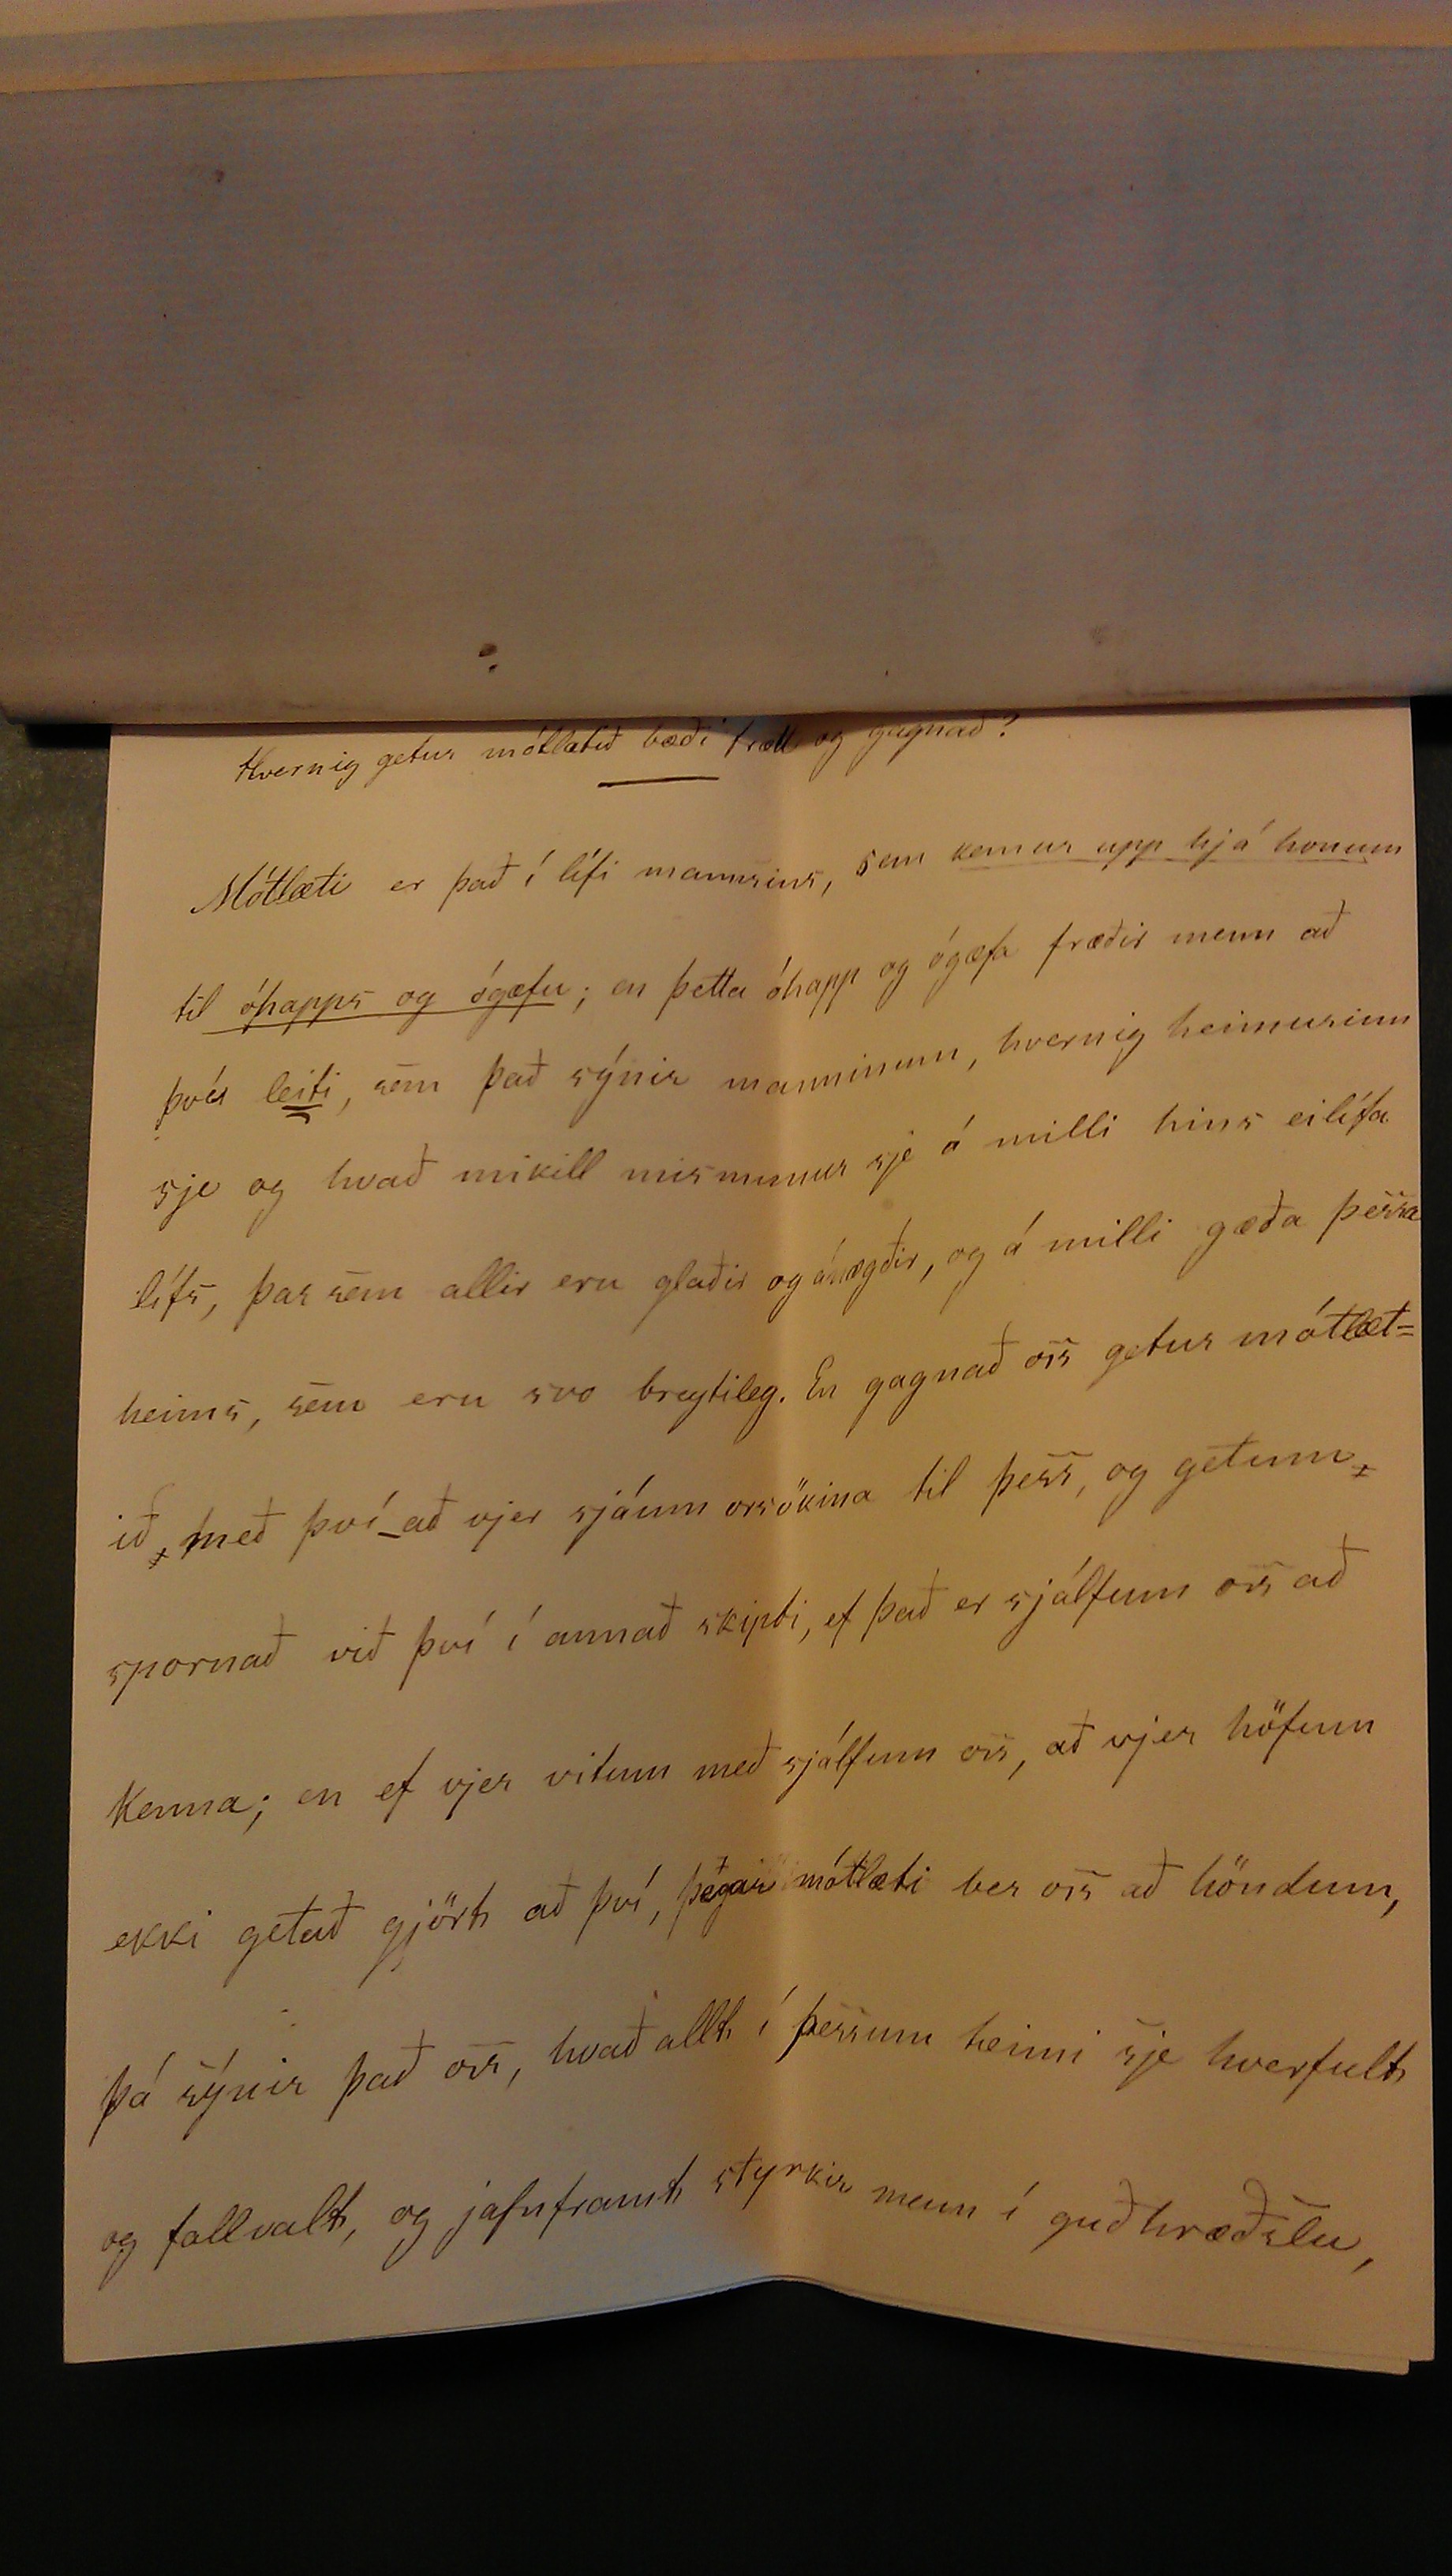 Hvernig getur mótlætið bæði frætt og gagnað?
Mótlæti er það í lífi mannsins, sem kemur upp hjá honum
til óhapps og ógæfu; en þetta óhapp og ógæfa fræðir menn að
því leiti, sem það sýnir manninum, hvernig heimurinn
sje og hvað mikill mismunur sje á milli hins eilífa
lífs, þar sem allir eru glaðir og ánægðir, og á milli gæða þessa
heims, sem eru svo breytileg. En gagnað oss getur mótlæt=
ið, með því að vjer sjáum orsökina til þess, og getum
spornað við því í annað skipti, ef það er sjálfum oss að
kenna; en ef vjer vitum með sjálfum oss, að vjer höfum
ekki getað gjört að því, þegar mótlæti ber oss að höndum,
þá sýnir það oss, hvað allt í þessum heimi sje hverfult
og fallvalt, og jafnframt styrkir menn í guðhræðslu,